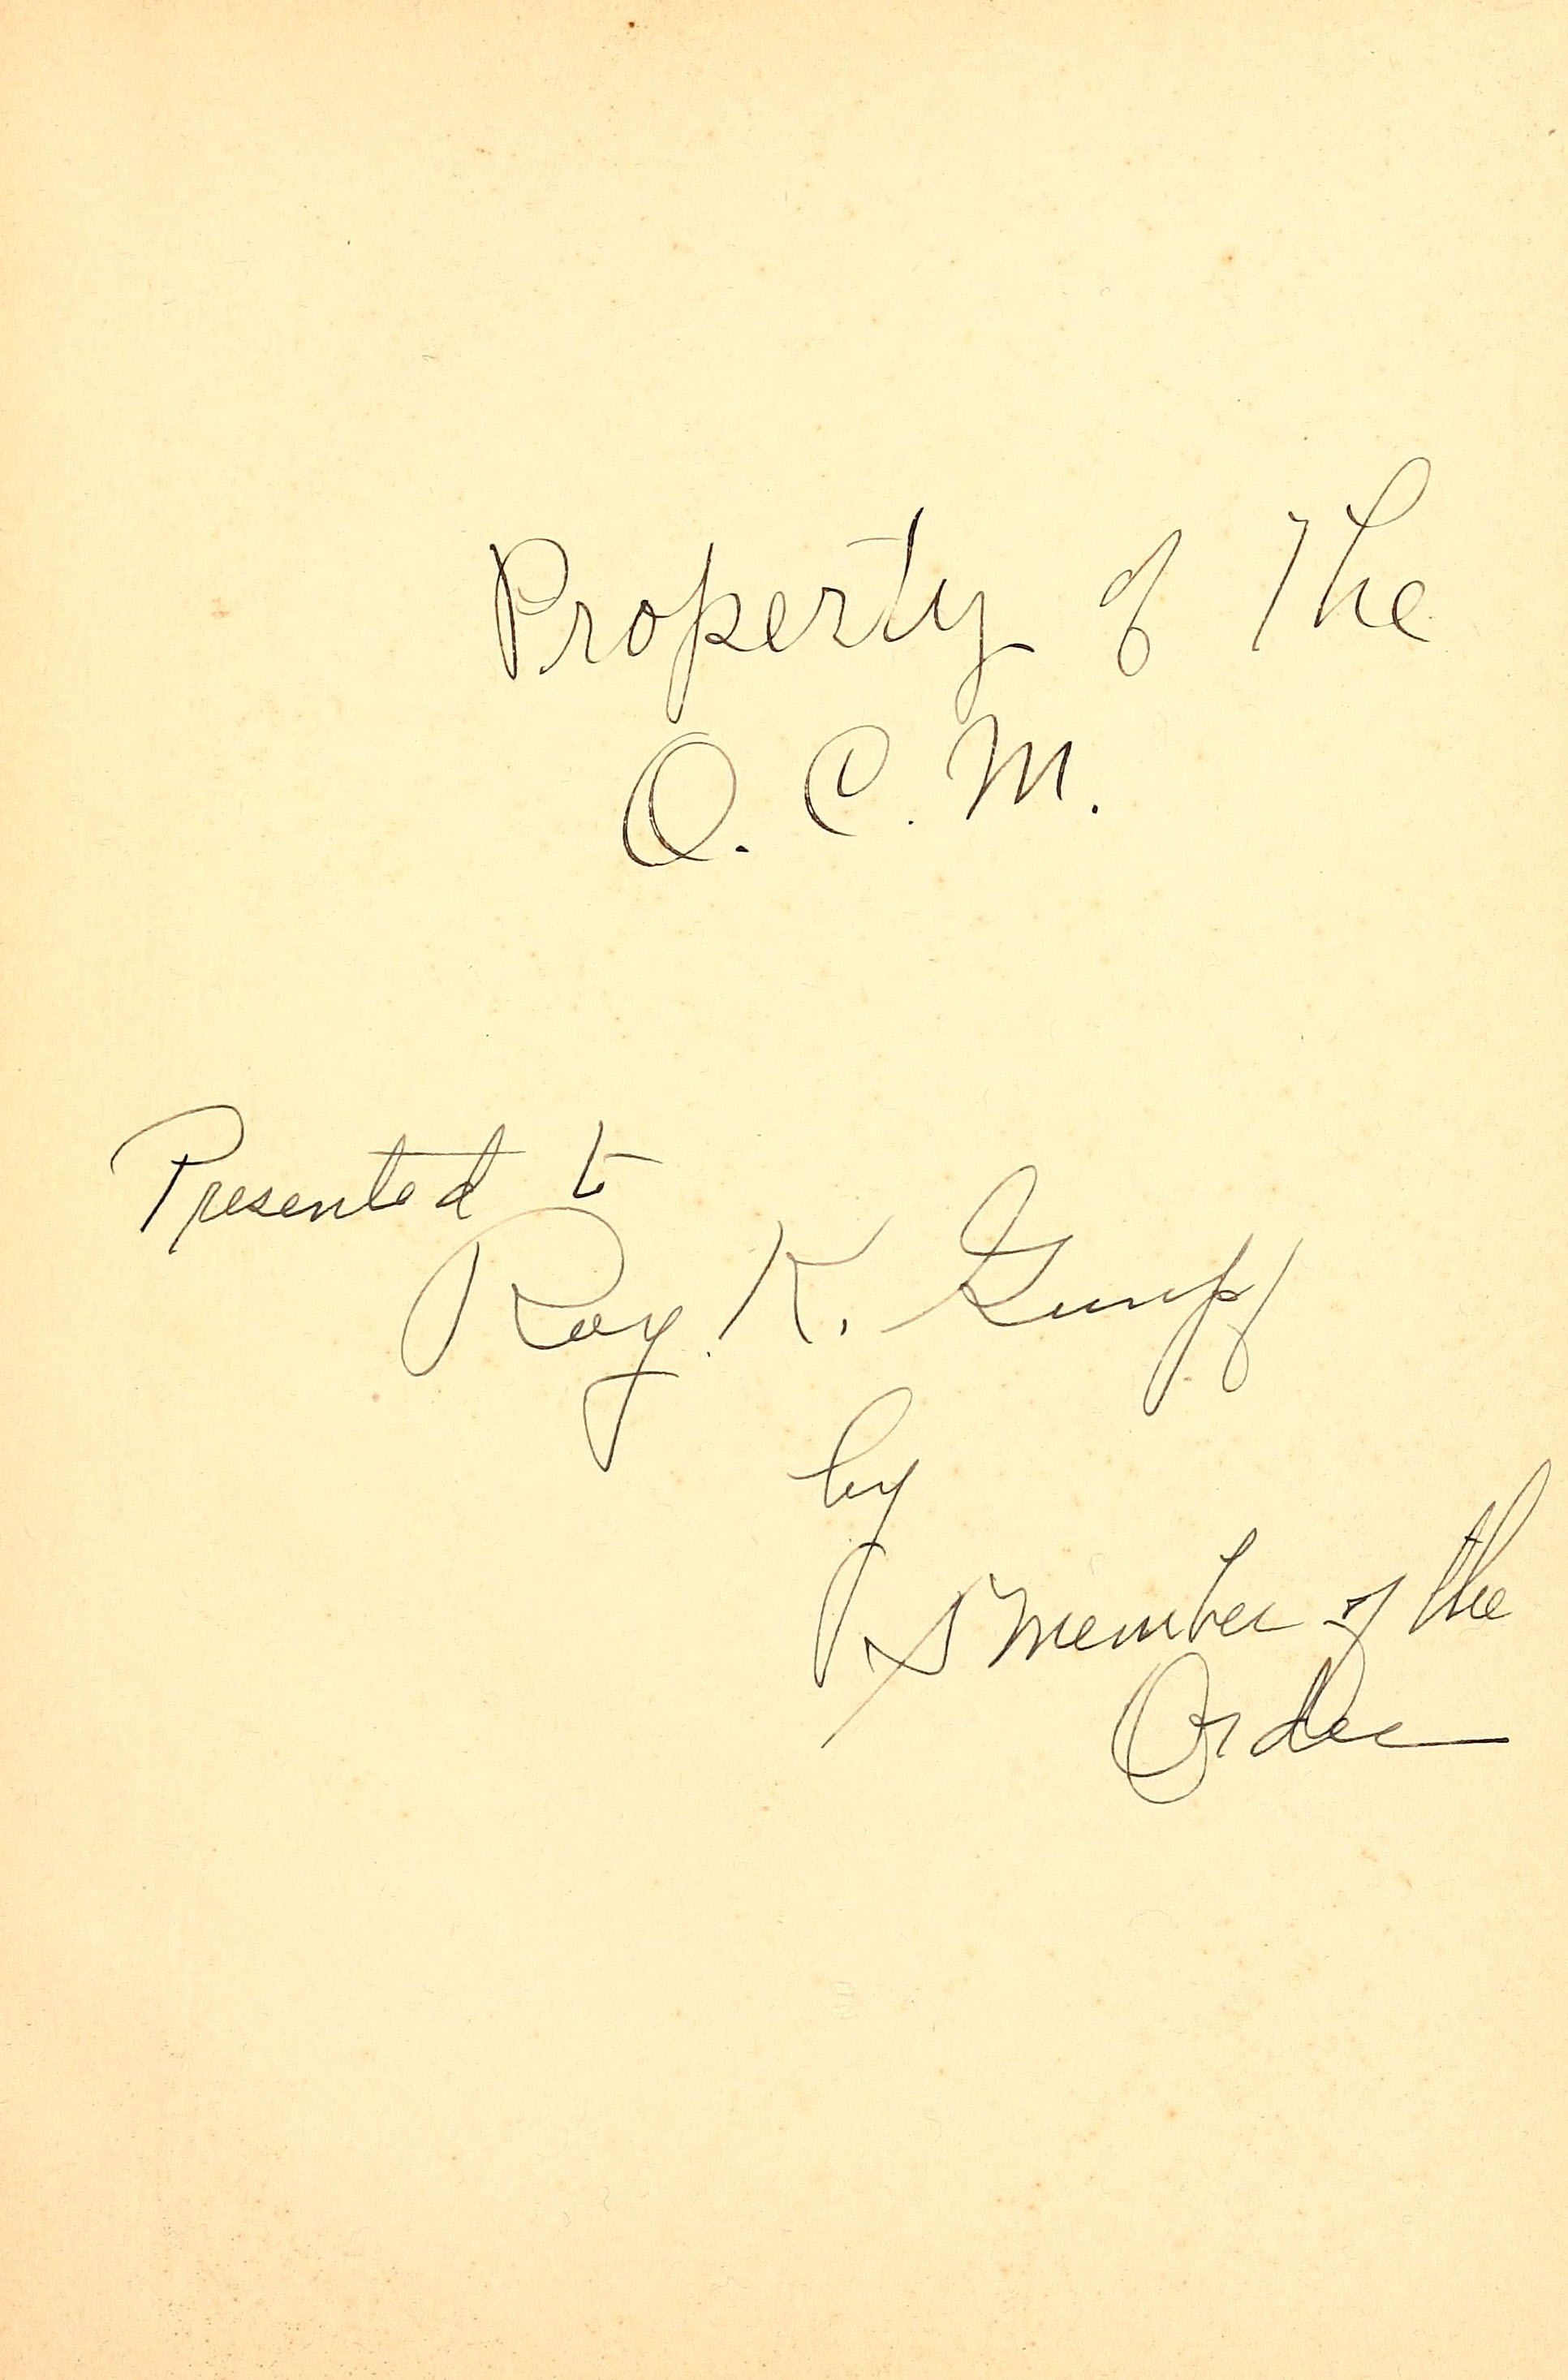 Property of The
O. C. M.
Presented to
Roy K. Gumpf
by
A Member of the
Order